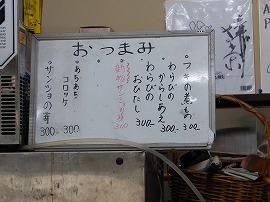 おつまみ
フキの煮もの
300
わらびの
からしあえ
300
わらびの
おひたし
300
あちあち
コロッケ
300
サンショの芽
300